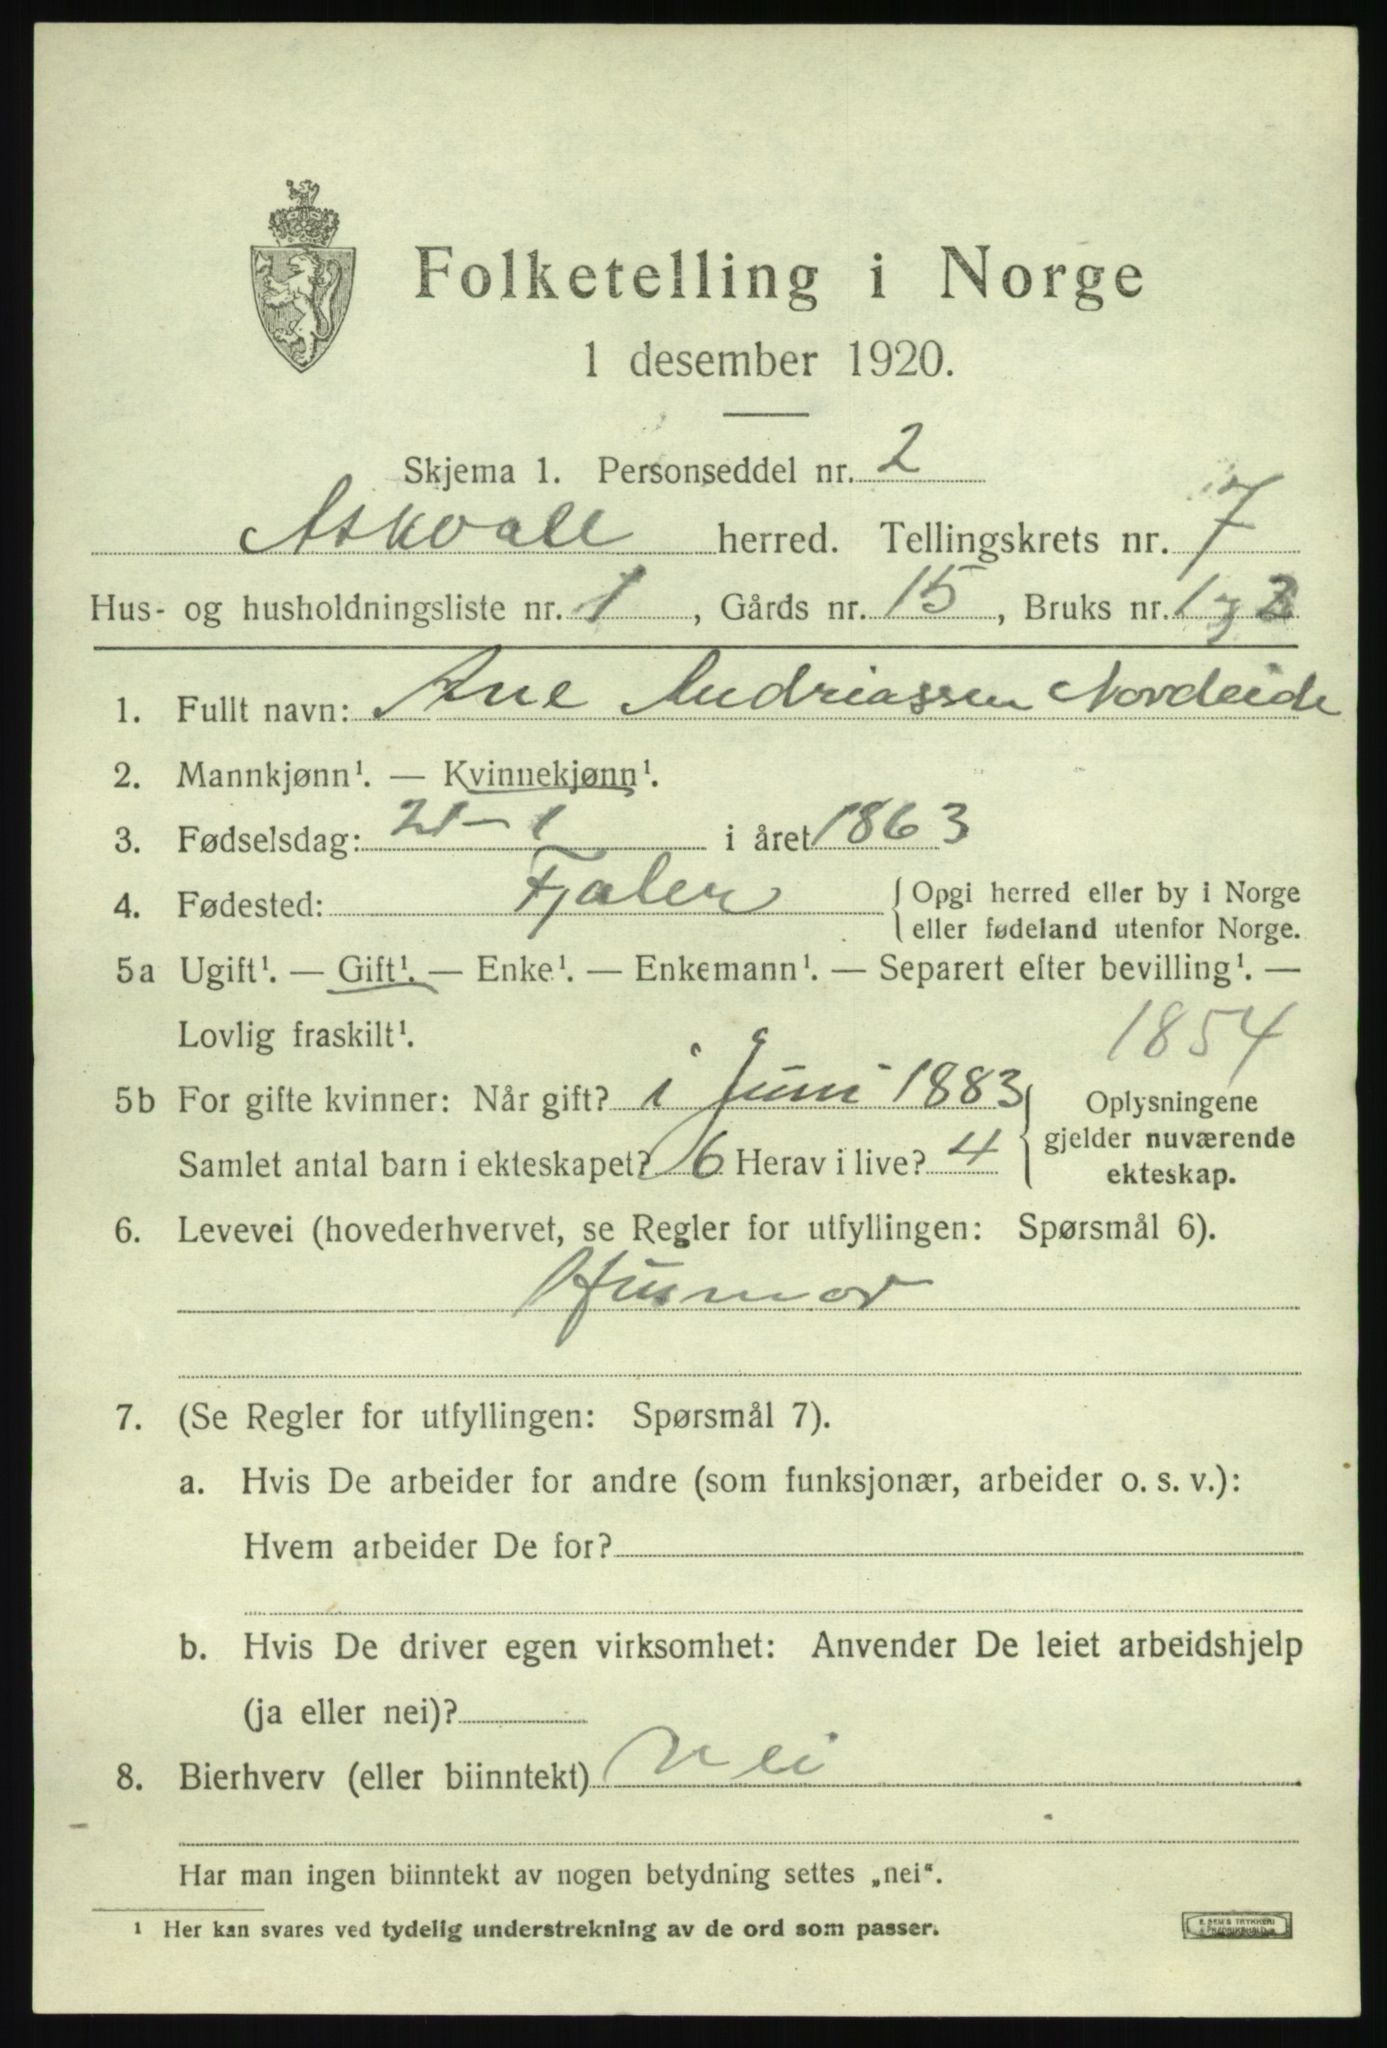 Folketelling i Norge
1 desember 1920.
Skjema 1. Personseddel nr. 2
Askvoll herred. Tellingskrets nr. 7
Hus- og husholdningsliste nr. 1, Gårds nr. 15, Bruks nr. 1 og 2
1. Fullt navn: Ane Andriassen Nordeide
2. Mannkjønn¹. — Kvinnekjønn¹.
3. Fødselsdag: 21-1 i året 1863
4. Fødested: Fjaler { Opgi herred eller by i Norge
eller fødeland utenfor Norge.
5a Ugift¹. — Gift¹. — Enke¹. — Enkemann¹. — Separert efter bevilling¹. —
Lovlig fraskilt¹. 1854
5b For gifte kvinner: Når gift? i Juni 1883 { Oplysningene
gjelder nuværende
Samlet antal barn i ekteskapet? 6 Herav i live? 4 ekteskap.
6. Levevei (hovederhvervet, se Regler for utfyllingen: Spørsmål 6).
Husmor
7. (Se Regler for utfyllingen: Spørsmål 7).
a. Hvis De arbeider for andre (som funksjonær, arbeider o. s. v.):
Hvem arbeider De for?
b. Hvis De driver egen virksomhet: Anvender De leiet arbeidshjelp
(ja eller nei)?
8. Bierhverv (eller biinntekt) Nei
Har man ingen biinntekt av nogen betydning settes „nei“.
¹ Her kan svares ved tydelig understrekning av de ord som passer.